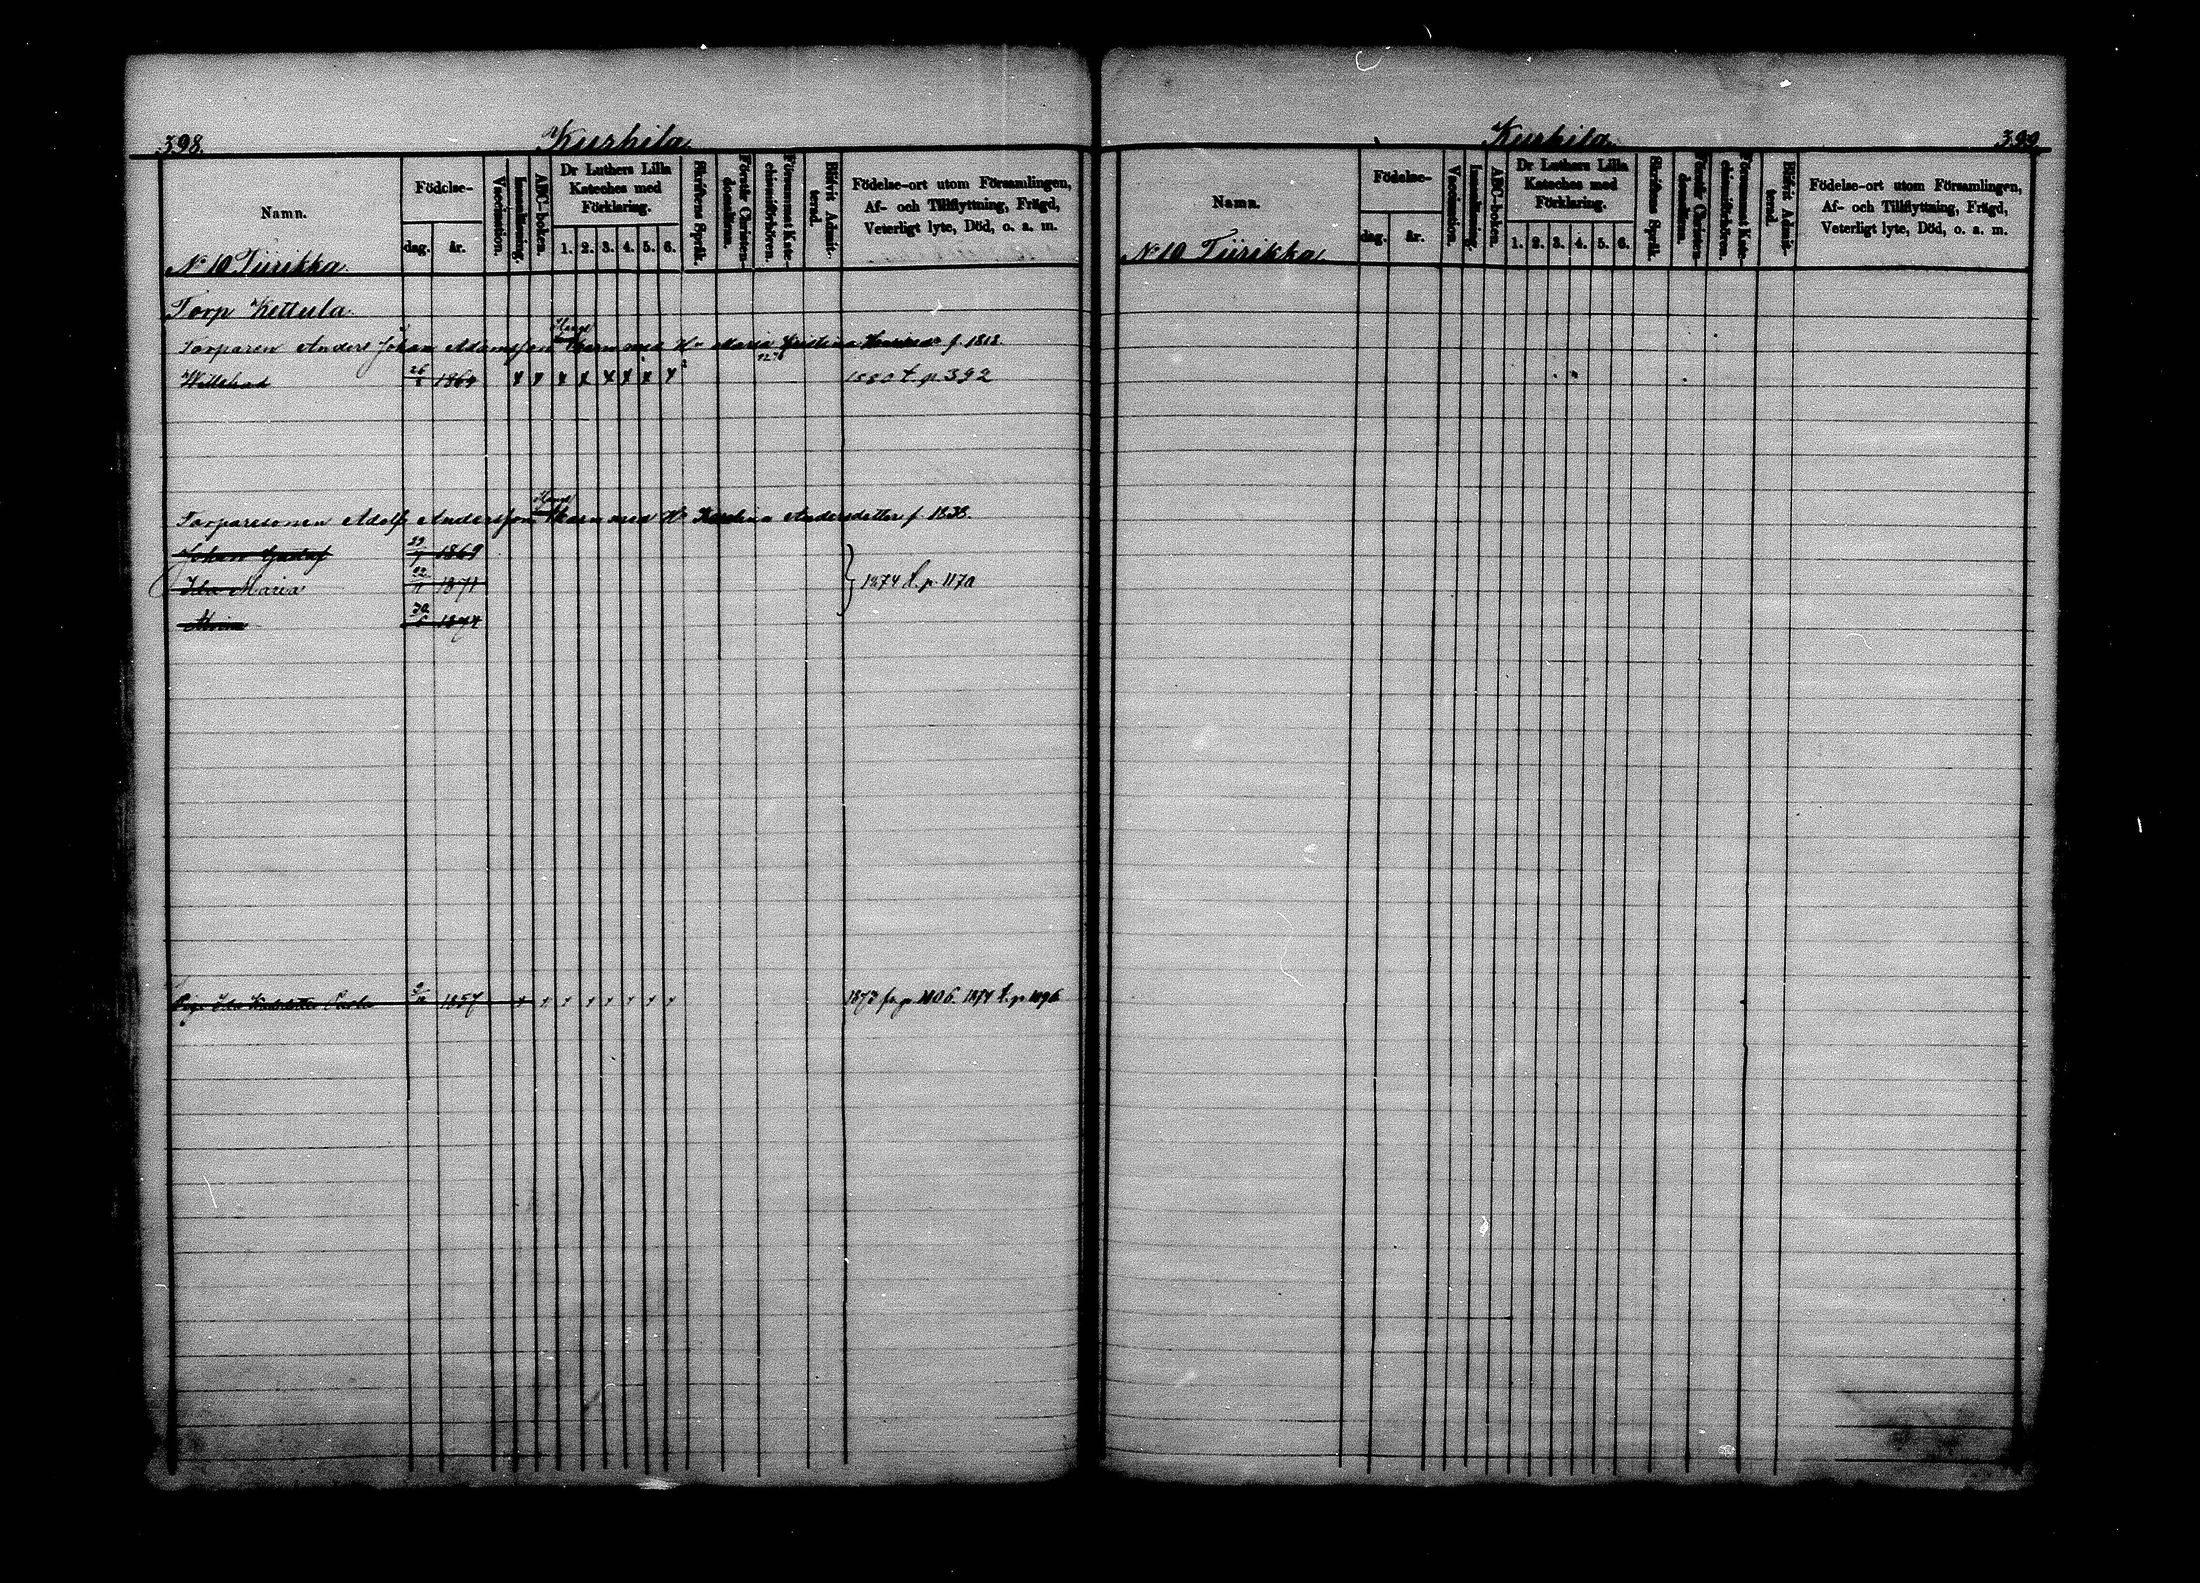 398.
Kurkila
Namn.
Födelse-
dag.
år.
Vaccination.
Innanläsning.
ABC-boken.
Dr Luthers Lilla
Kateches med
Förklaring.
1. 2. 3. 4. 5. 6.
Skriftens Språk.
Förstår Christen-
domslären.
Försummat Kate-
chismiförhören.
Blifvit Admit-
terad.
Födelse-ort utom Församlingen,
Af- och Tillflyttning, Frägd,
Veterligt lyte, Död, o. a. m.
No 10 Tiirikka
Torp Kettula
Torparen Anders Johan Adamsson barn med Hu Maria f. 1818
26 1864 1880 t. p 392
Torparesonen Adolf Andersson barn med Hu Andersdotter f 1838.
Johan Gustaf 29 1869
Ida Maria 22 1871 1874 t. p 1170
30 1874
1857 1873 fr. p 1106. 1874 t. p 1096
Kurkila
399
Namn.
Födelse-
dag.
år.
Vaccination.
Innanläsning.
ABC-boken.
Dr Luthers Lilla
Kateches med
Förklaring.
1. 2. 3. 4. 5. 6.
Skriftens Språk.
Förstår Christen-
domslären.
Försummat Kate-
chismiförhören.
Blifvit Admit-
terad.
Födelse-ort utom Församlingen,
Af- och Tillflyttning, Frägd,
Veterligt lyte, Död, o. a. m.
No 10 Tiirikka